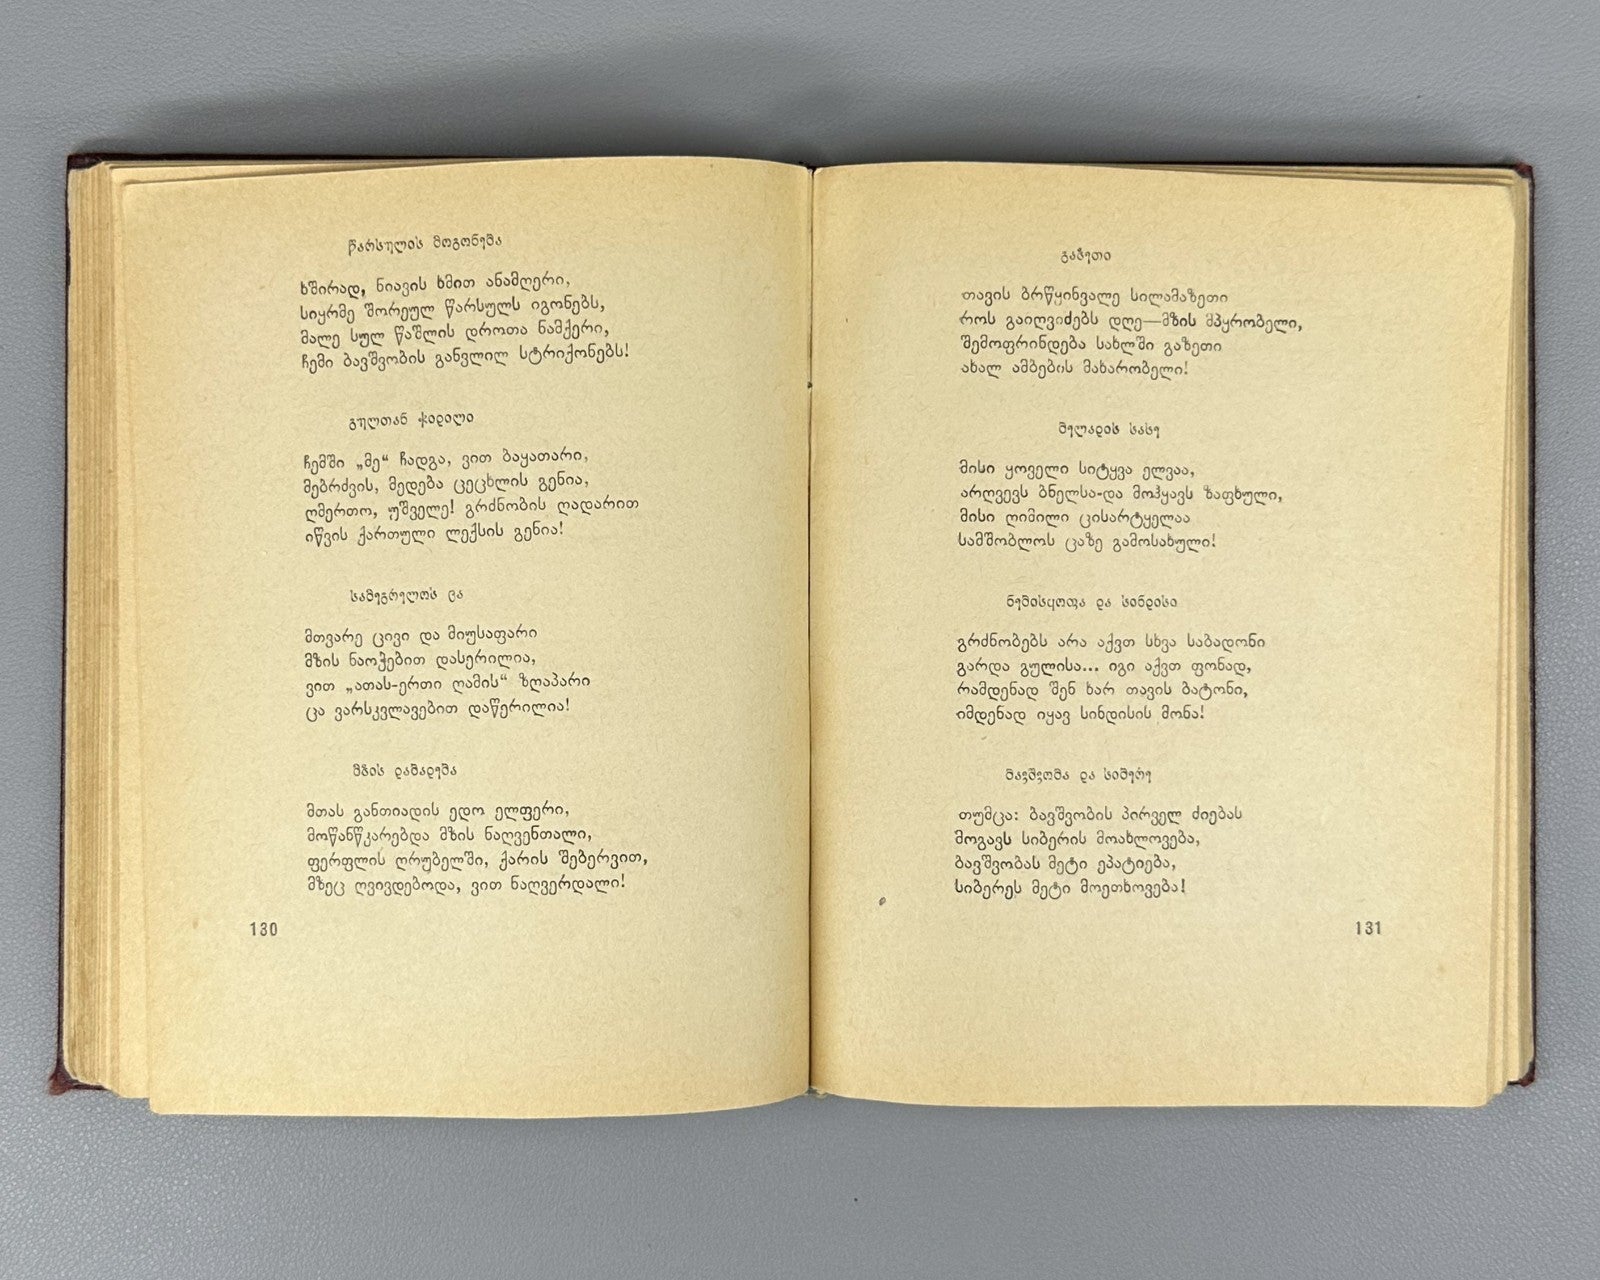 წარსულის მოგონება
ხშირად, ნიავის ხმით ანამღერი,
სიყრმე შორეულ წარსულს იგონებს,
მალე სულ წაშლის დროთა ნამქერი,
ჩემი ბავშვობის განვლილ სტრიქონებს!
გულთან ჭიდილი
ჩემში „მე“ ჩადგა, ვით ბაყათარი,
მებრძვის, მედება ცეცხლის გენია,
ღმერთო, უშველე! გრძნობის ღადარით
იწვის ქართული ლექსის გენია!
სამეგრელოს ცა
მთვარე ცივი და მიუსაფარი
მზის ნაოჭებით დასერილია,
ვით „ათას-ერთი ღამის“ ზღაპარი
ცა ვარსკვლავებით დაწერილია!
მზის დაბადება
მთას განთიადის ედო ელფერი,
მოწანწკარებდა მზის ნაღვენთალი,
ფერფლის ღრუბელში, ქარის შებერვით,
მზეც ღვივდებოდა, ვით ნაღვერდალი!
130
გაზეთი
თავის ბრწყინვალე სილამაზეთი
როს გაიღვიძებს დღე—მზის მპყრობელი,
შემოფრინდება სახლში გაზეთი
ახალ ამბების მახარობელი!
ბელადის სახე
მისი ყოველი სიტყვა ელვაა,
არღვევს ბნელსა-და მოჰყავს ზაფხული,
მისი ღიმილი ცისარტყელაა
სამშობლოს ცაზე გამოსახული!
ნებისყოფა და სინდისი
გრძნობებს არა აქვთ სხვა საბადონი
გარდა გულისა... იგი აქვთ ფონად,
რამდენად შენ ხარ თავის ბატონი,
იმდენად იყავ სინდისის მონა!
ბავშვობა და სიბერე
თუმცა: ბავშვობის პირველ ძიებას
მოგავს სიბერის მოახლოვება,
ბავშვობას მეტი ეპატიება,
სიბერეს მეტი მოეთხოვება!
131